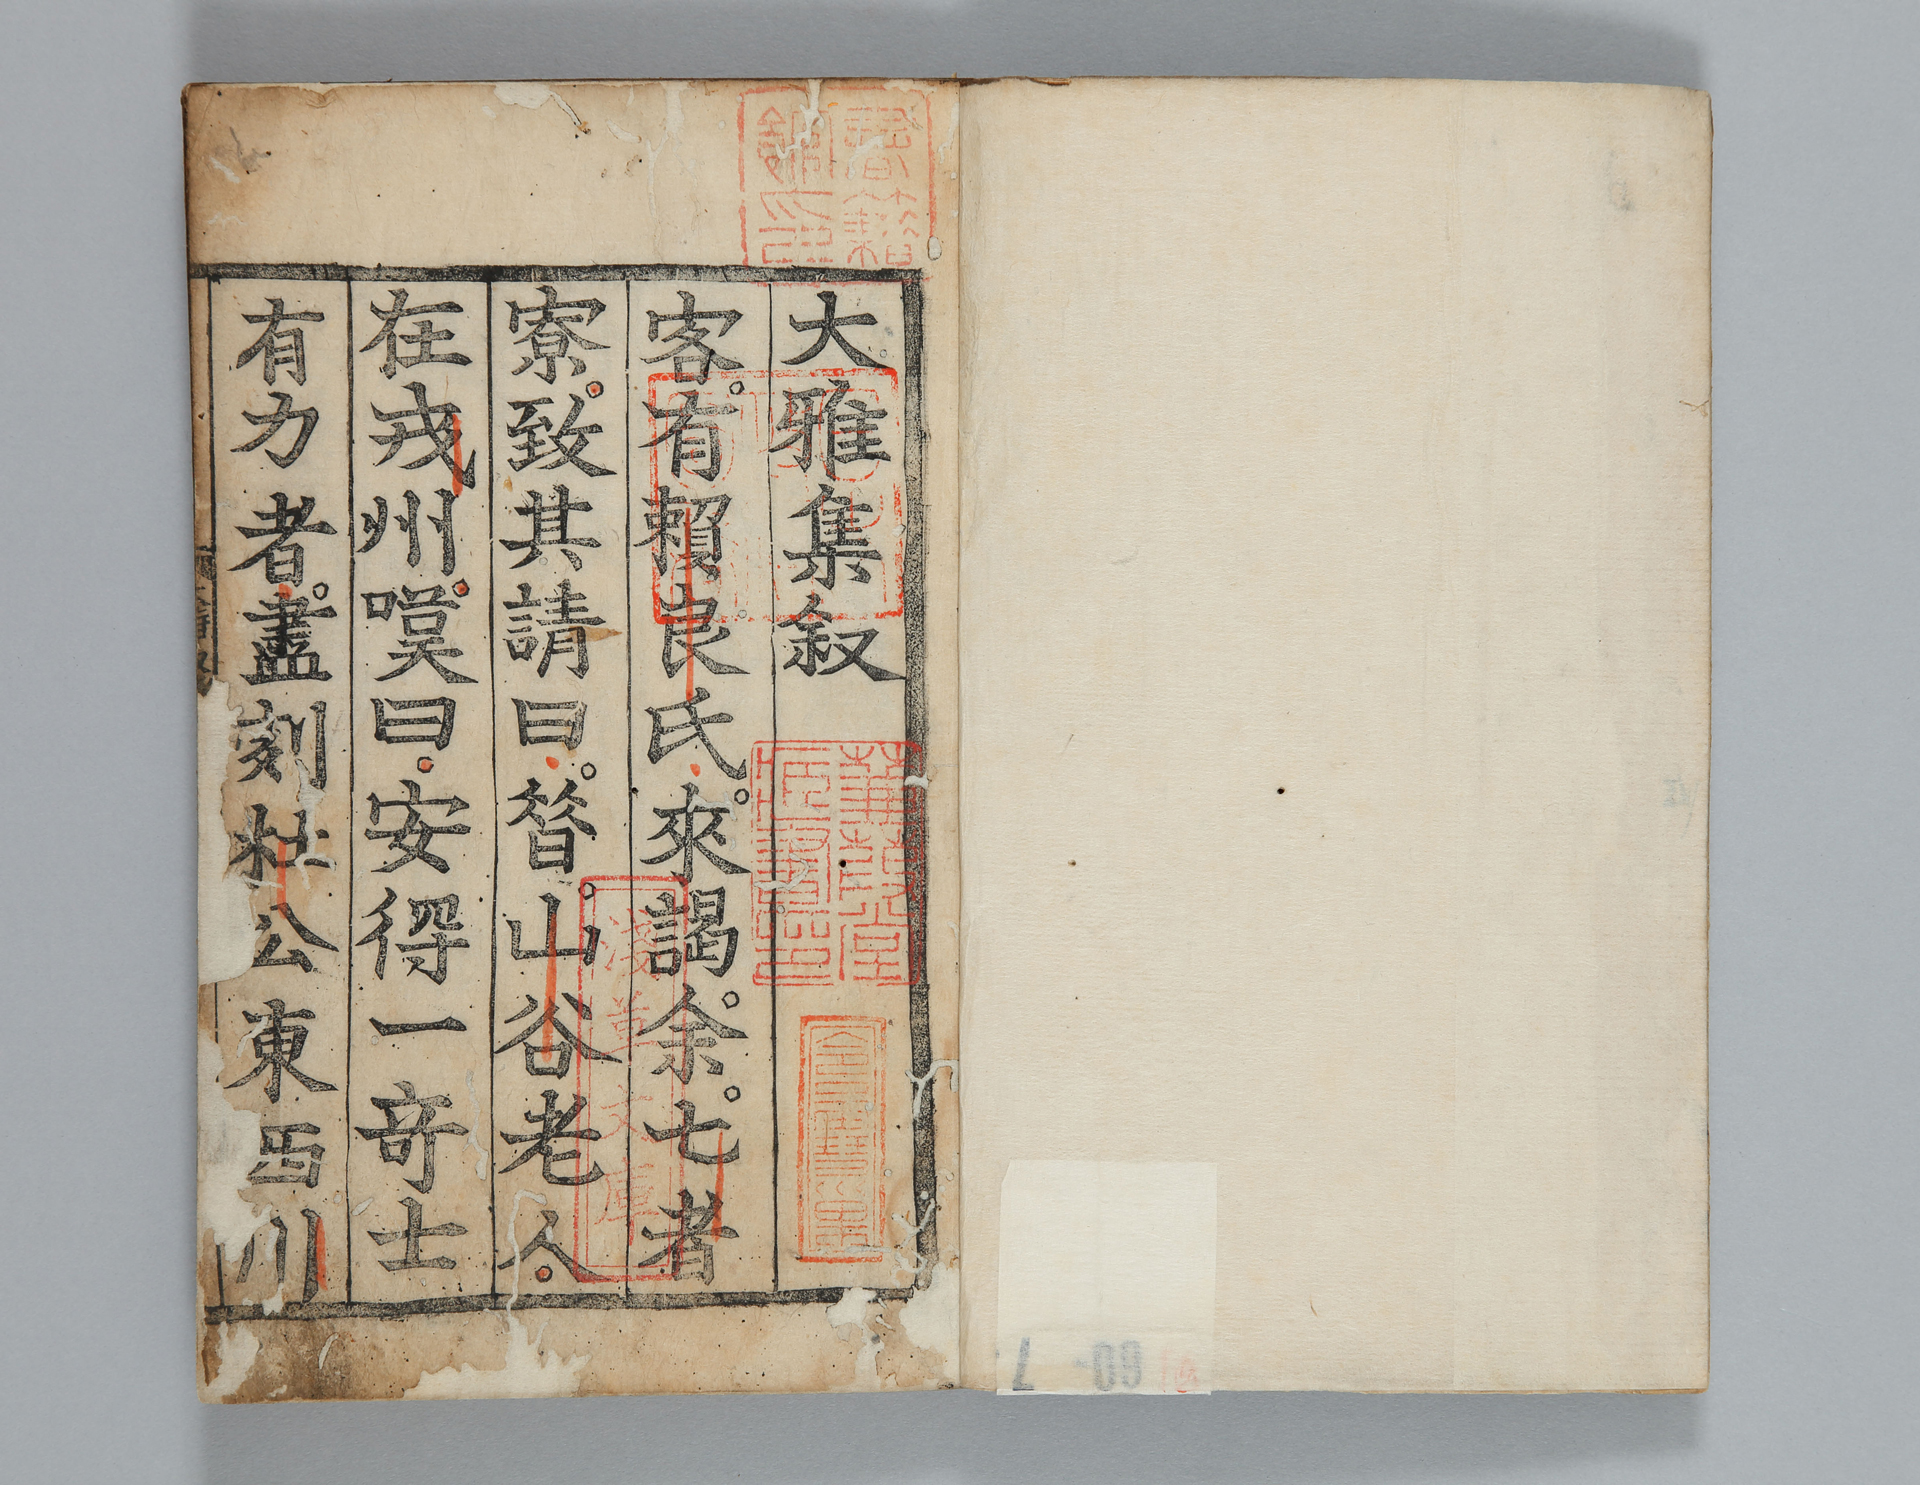 大雅集叙
客。有賴良氏。來謁。余。七者
寮。致其請曰。昝。山谷老人。
在戎州。嘆曰。安得一竒士
有力者。盡刻杜公東西川
淺草文庫